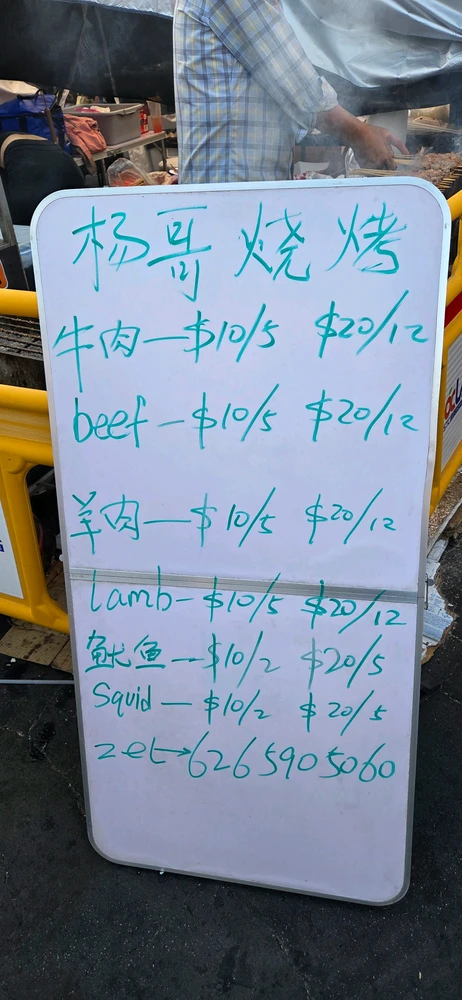 杨哥烧烤
牛肉—$10/5 $20/12
beef—$10/5 $20/12
羊肉—$10/5 $20/12
Lamb—$10/5 $20/12
鱿鱼—$10/2 $20/5
Squid—$10/2 $20/5
zet→6265905060